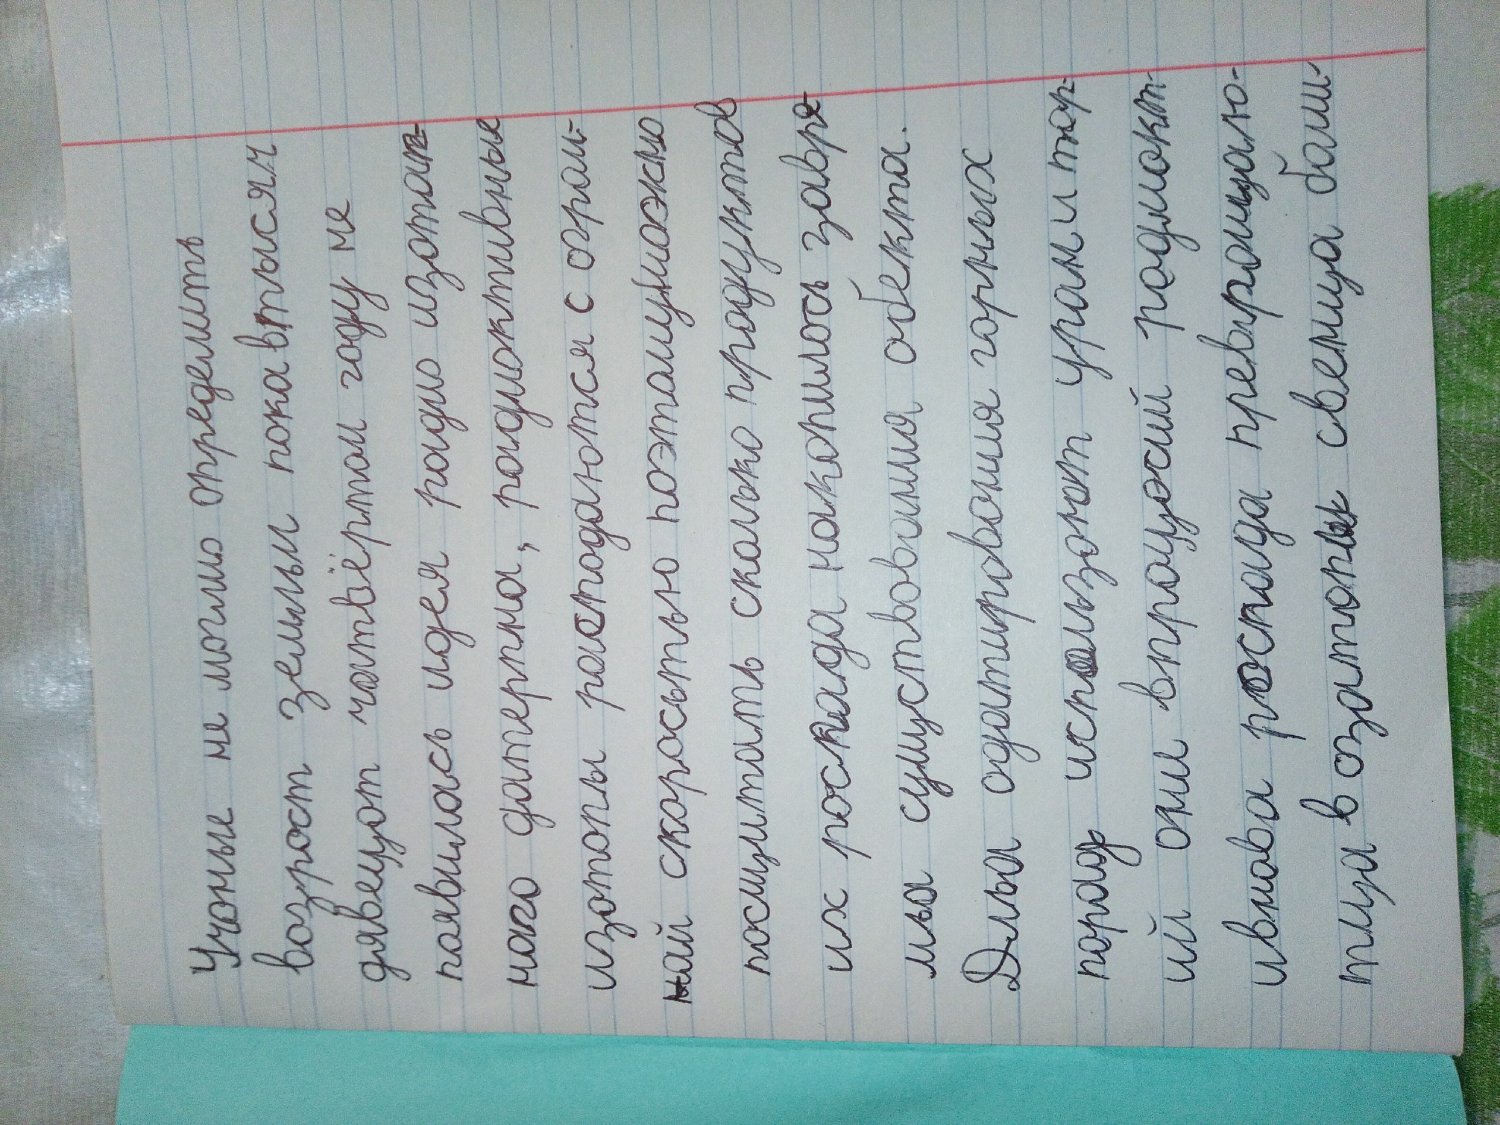 Учоные не могли определить
возрост земльи пока втысяч
дявецот чатвёртом году не
паявилась идея радио изотап-
ного датерпна, родиоктивные
изотопы распадаются с огром-
най скоросьтью поэтамуможно
посщитать сколько продуктов
их роспада накопилось завре-
мьа сумуствования обекта.
Длья одатирования горных
пород использют уран и тор-
ий они впрацосий радиокт-
ивнова роспада превращаю-
тца в озатопы свенца бали-